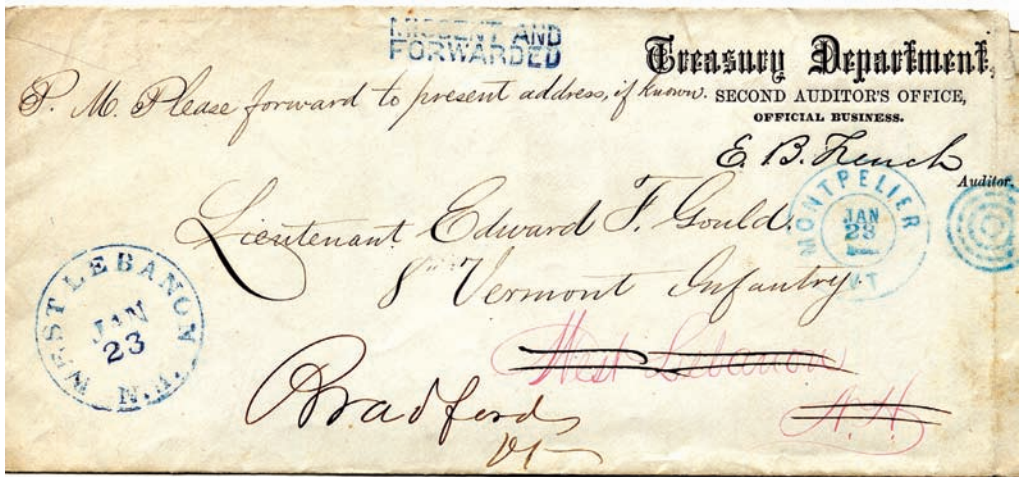 MISSENT AND
FORWARDED
Treasury Department,
SECOND AUDITOR'S OFFICE,
OFFICIAL BUSINESS.
P. M. Please forward to present address, if known.
E. B. French
Auditor.
Lieutenant Edward F. Gould.
8" Vermont Infantry.
MONTPELIER
JAN
23
VT
WEST LEBANON
JAN
23
N.H.
West Lebanon
N. H.
Bradford
Vt